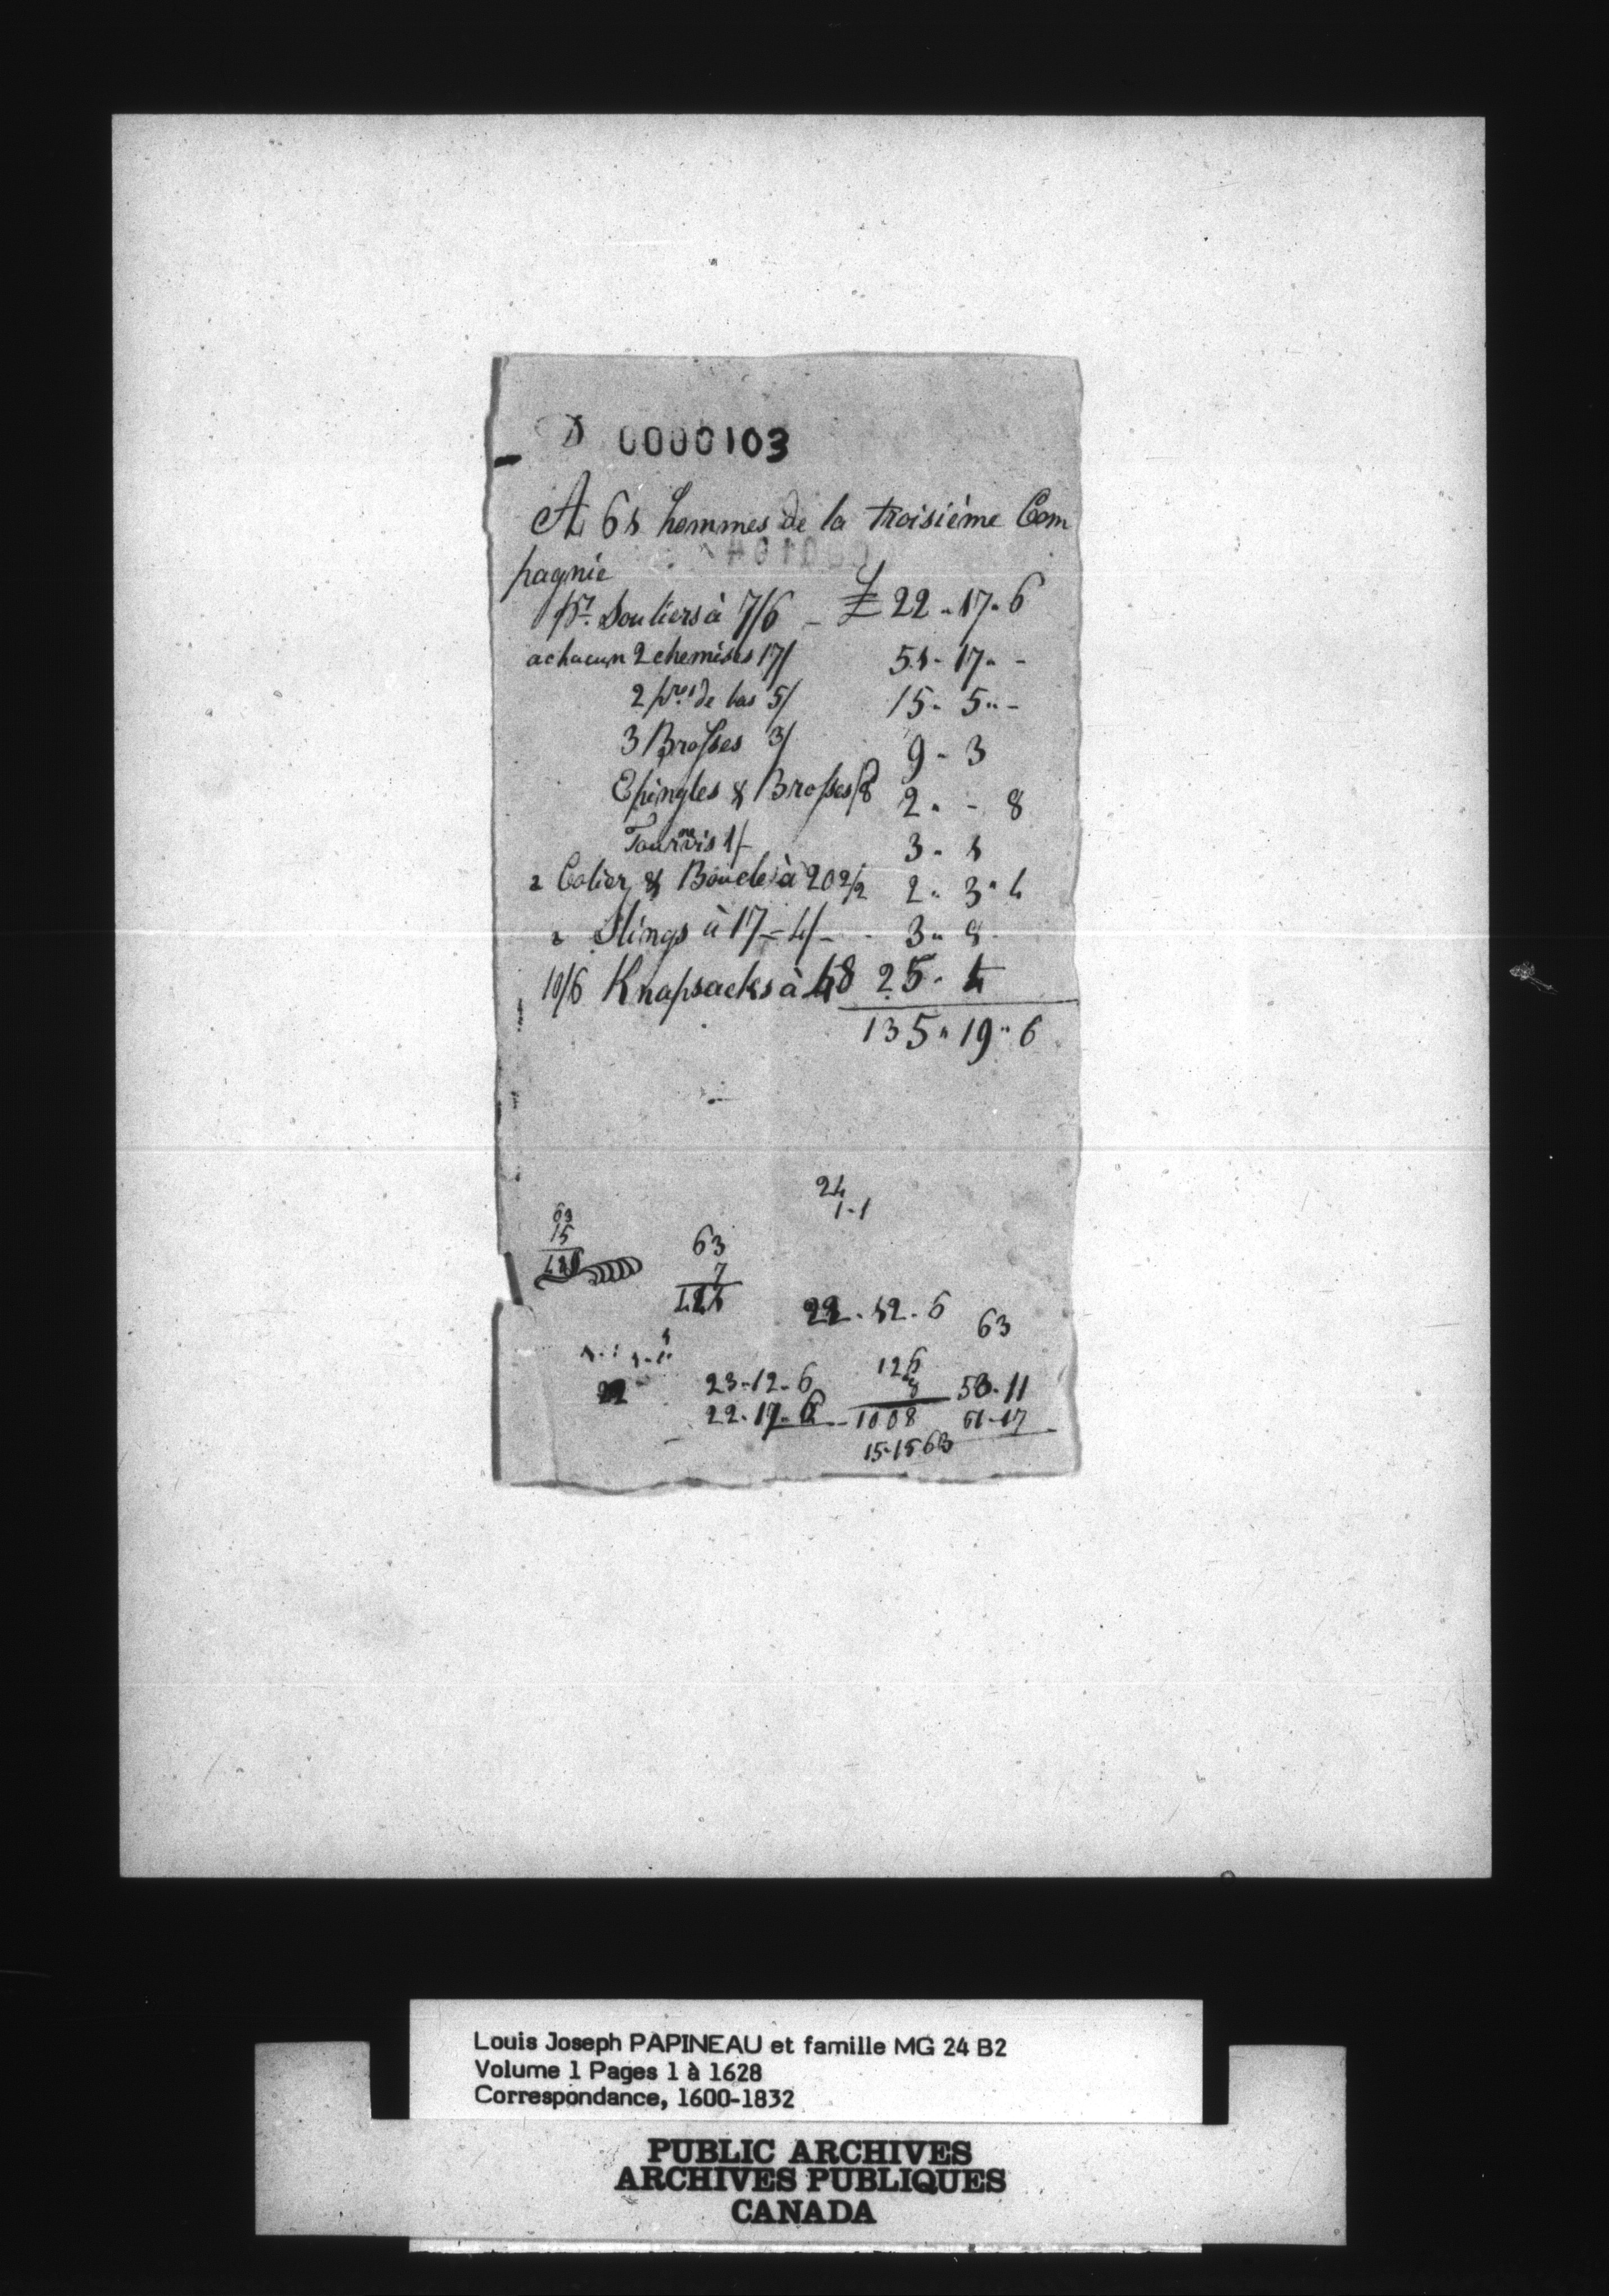 D 0000103
A 61 hommes de la troisième Com
pagnie
prs. Souliers à 7/6 _ £ 22 " 17 " 6
a chacun 2 chemises 17/ 51 - 17 " -
2 prs. de bas 5/ 15 " 5 " -
3 Brosses 3/ 9 - 3
Epingles & Brosses /8 2 " - 8
Tournvis 1/- 3 - 1
a Colier & Boucle à 20 2/2 2 " 3 " 4
a Slings à 17 = 4/ - - 3 " 8 -
10/6 Knapsacks à 48 25 - 4
135 " 19 " 6
24
1-1
63
15
63
7
22 - 12 - 6
63
126
8
23-12-6
53-11
22
22-17-6
1008
51-17
15-15
63
Louis Joseph PAPINEAU et famille MG 24 B2
Volume 1 Pages 1 à 1628
Correspondance, 1600-1832
PUBLIC ARCHIVES
ARCHIVES PUBLIQUES
CANADA